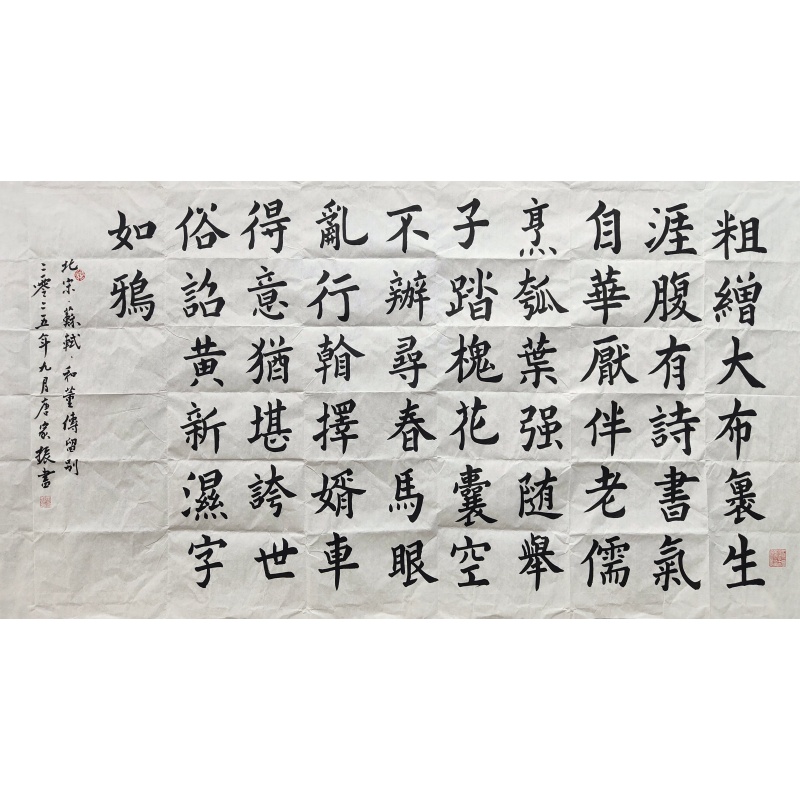 粗繒大布裹生
涯腹有詩書氣
自華厭伴老儒
烹瓠葉强随舉
子踏槐花囊空
不辦尋春馬眼
亂行𥉼擇婿車
得意猶堪誇世
俗詔黄新濕字
如鴉
北宋蘇軾·和董傳留别
二零二五年九月唐家振書